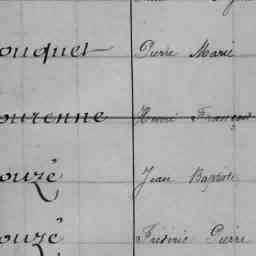 ouquet Pierre Marie
ourenne Henri François
ouzé Jean Baptiste
ouzé Frédéric Pierre